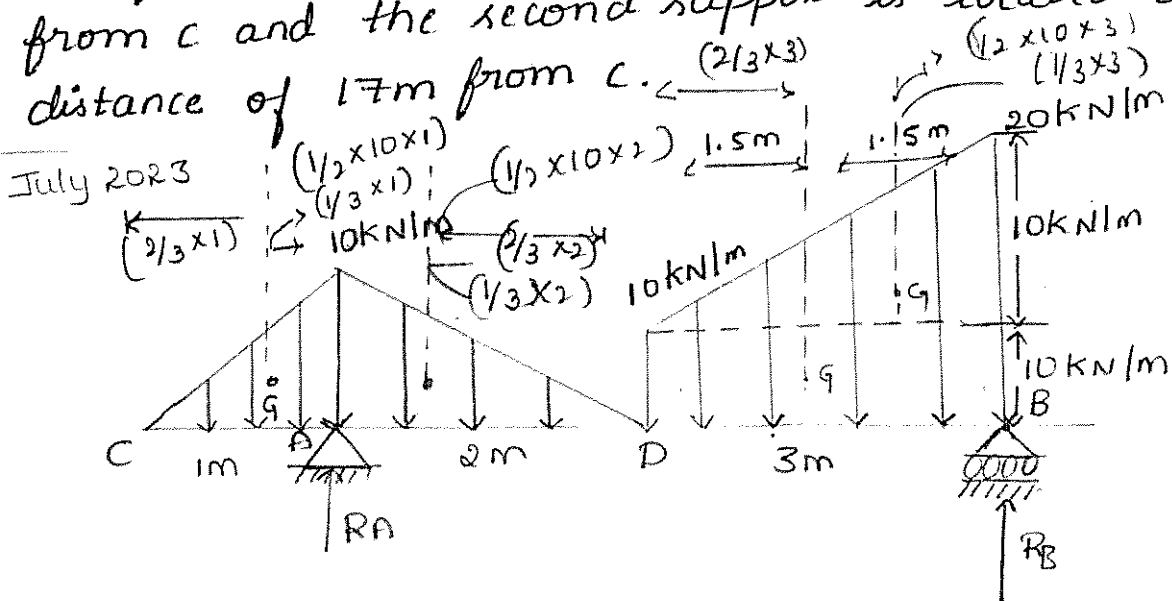 from c and the second support is
distance of 17m from c.
(2/3×3)
(1/2×10×3)
(1/3×3)
July 2023
(1/2×10×1)
(1/3×1)
(2/3×1)
10KN/m
(1/2×10×2)
(2/3×2)
(1/3×2)
1.5m
1.15m
20KN/m
10KN/m
10KN/m
10KN/m
G
G
G
C
1m
A
2m
D
3m
B
RA
RB